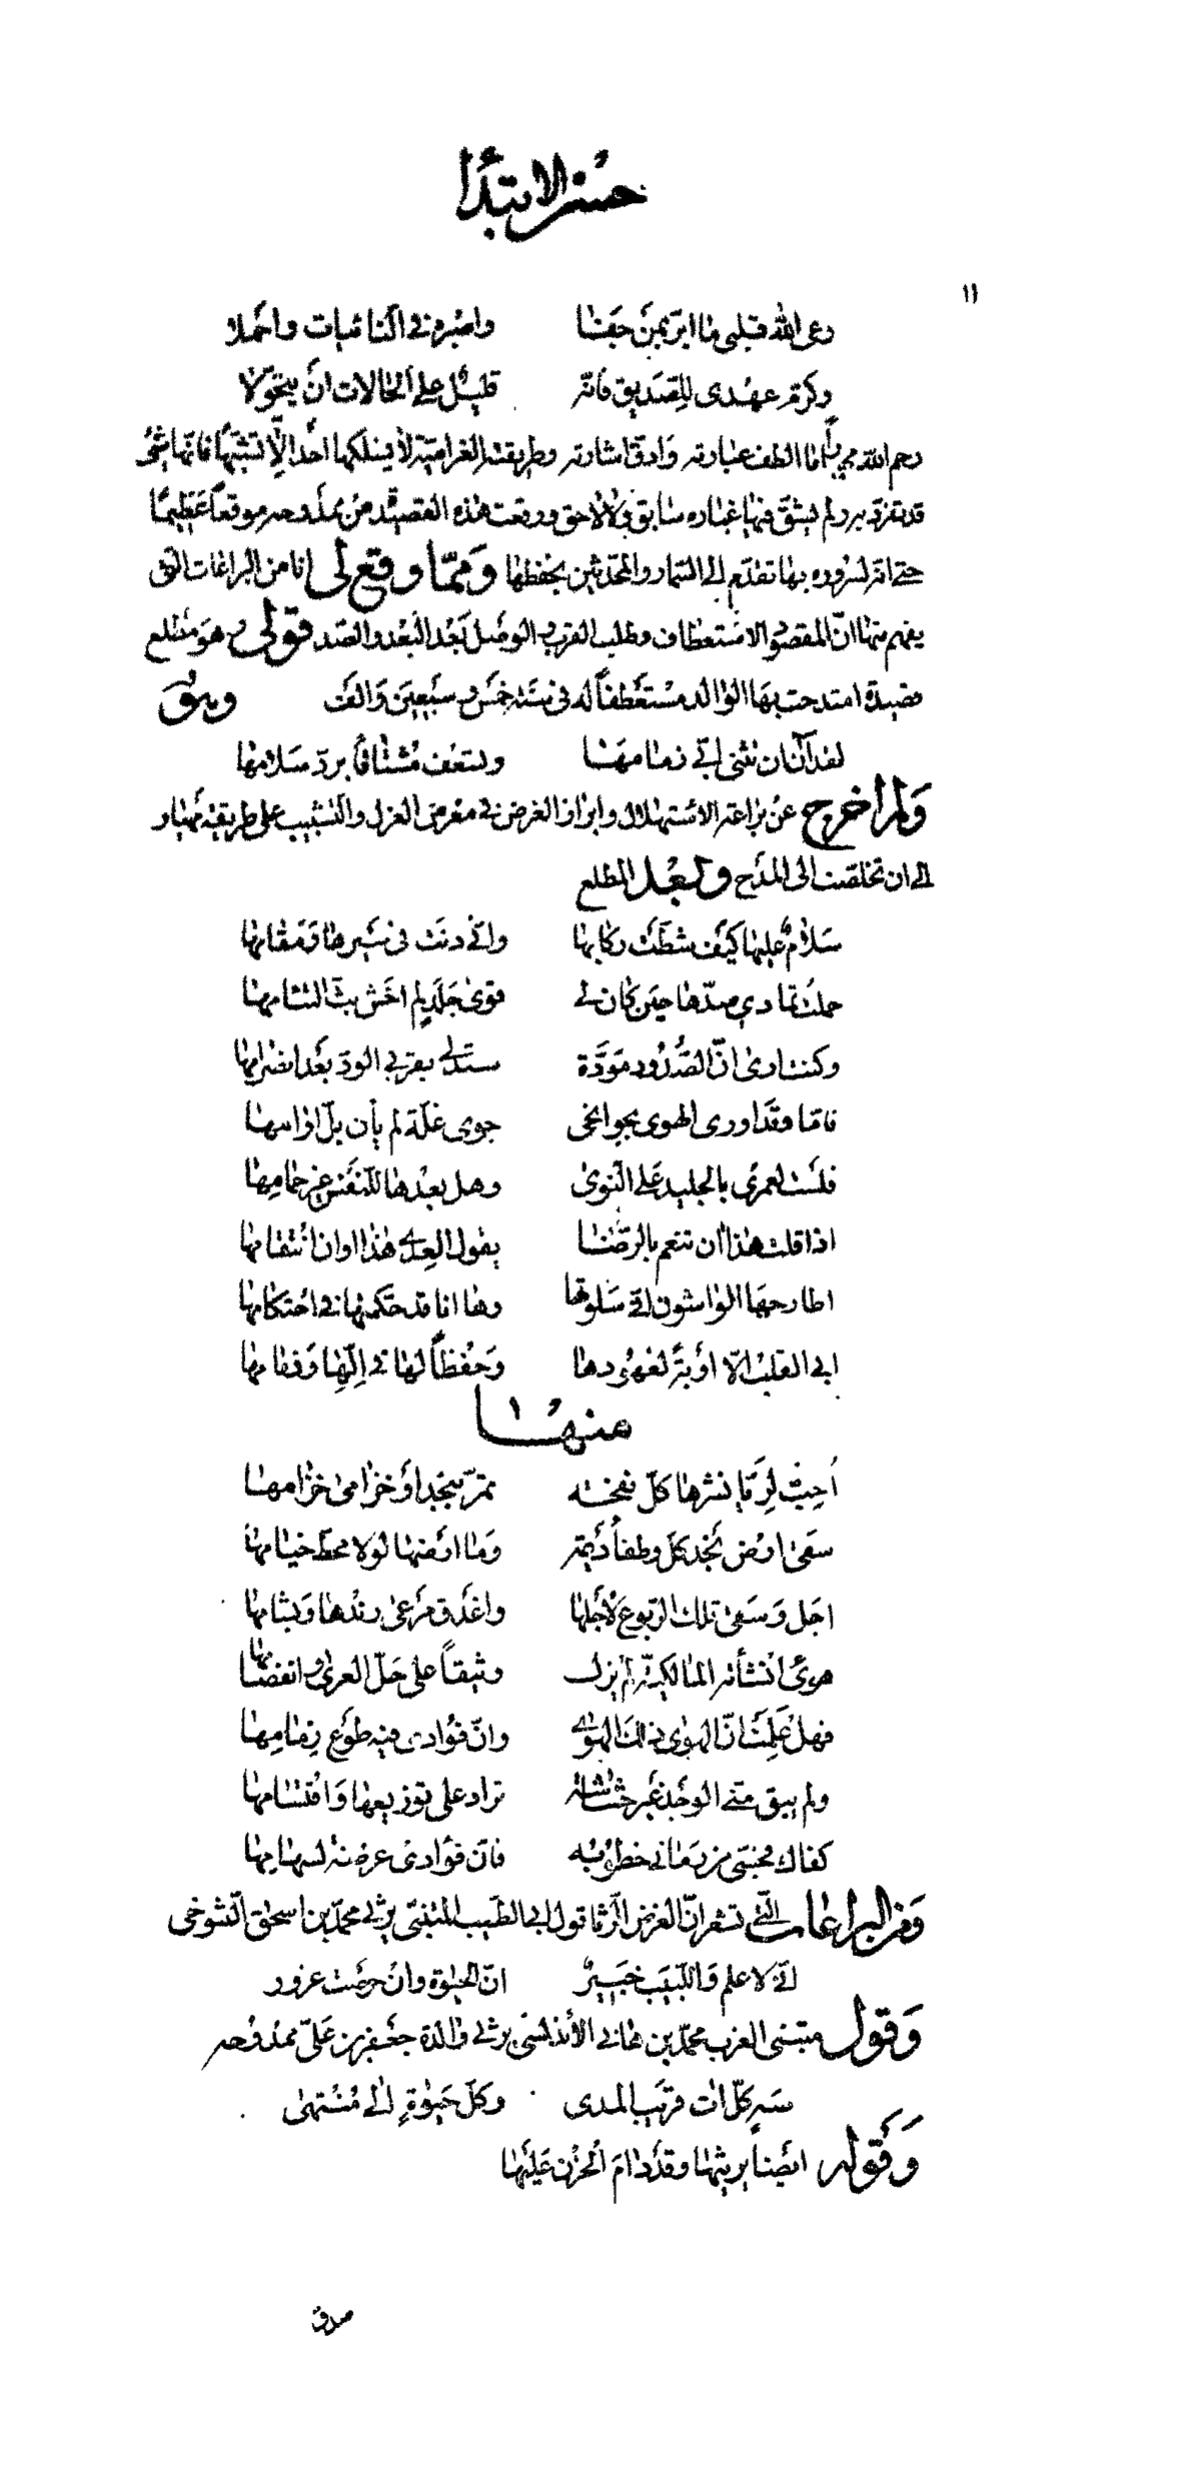 حسن الابتدأ
١١
رعى الله قلبى ما ابرّ بمن جفا واصبره فى النائبات واحملا
وكرّم عهدى للصديق فانّه قليل على الحالات ان يتحوّلا
رحم الله مهيار ما الطف عبارته وادقّ اشارته وطريقته الغراميّة لا يسلكها احد الّا تشبّها فانّها شىء
قد تفرّد به ولم يشقّ فيها غباره سابق ولا لاحق ووقعت هذه القصيدة من ممدوحه موقعاً عظيمًا
حتى انّه لسروره بها تقدّم الى السمّار والمحدّثين بحفظها وممّا وقع لى انا من البراعات التى
يفهم منها انّ المقصود الاستعطاف وطلب القرب والوصل بعد البعد والصد قولى وهو مطلع
قصيدة امتدحت بها الوالد مستعطفاً له فى سنة خمس وسبعين والف وهى
لقد آن ان تثنى ابىّ زمامها وتسعف مشتاقا بردّ سلامها
ولم اخرج عن براعة الاستهلال وابراز الغرض فى معرض الغزل والتشبيب على طريقة مهيار
الى ان تخلّصت الى المدح وبعد المطلع
سلام عليها كيف شطّت ركابها وانّى دنت فى سيرها ومقامها
حملت تمادى صدّها حين كان لى قوى جلد لم اخش بثّ التئامها
وكنت ارى انّ الصدود مودّة ستدلى بقربى الود بعد انصرامها
فامّا وقد اورى الهوى بجوانحى جوى غلّة لم يأن بلّ اوامها
فلست لعمرى بالجليد على النوى وهل بعدها للنفس غير حمامها
اذا قلت هذا آن تنعم بالرضا يقول العدى هذا اوان انتقامها
اطارحها الواشون انّى سلوتها وها انا قد حكّمتها فى احتكامها
ابى القلب الّا اوبة لعهودها وحفظاً لها فى الّها وذمامها
منها
احبّ لريّا نشرها كلّ نفحة تمرّ بنجد او خزامى خزامها
سقى ارض نجد كل وطفاء ديمة وما ارضها لولا محطّ خيامها
اجل وسقى تلك الربوع لاجلها واغدق مرعى رندها وبشامها
هوى انشأته المالكيّة لم يزل وثيقاً على حلّ العرى وانفصامها
فهل علمت انّ الهوى ذلك الهوى وانّ فؤادى فيه طوع زمامها
ولم يبق منّى الوجد غير حشاشة تراد على توزيعها واقتسامها
كفاك محنتى من زمانى خطوبه فانّ فؤادى عرضة لسهامها
ومن البراعات التى تشعر انّ الغرض الرثا قول ابى الطيب المتنبّى يرثى محمّد بن اسحق التنوخى
انّى لاعلم واللبيب خبير انّ الحيوة وان حرصت غرور
وقول متنبى الغرب محمّد بن هانى الأندلسى يرثى والدة جعفر بن علىّ ممدوحه
صه كلّ آت قريب المدى وكلّ حيوة الى منتهى
وقوله ايضاً يرثيها وقد دام الحزن عليها
صدق